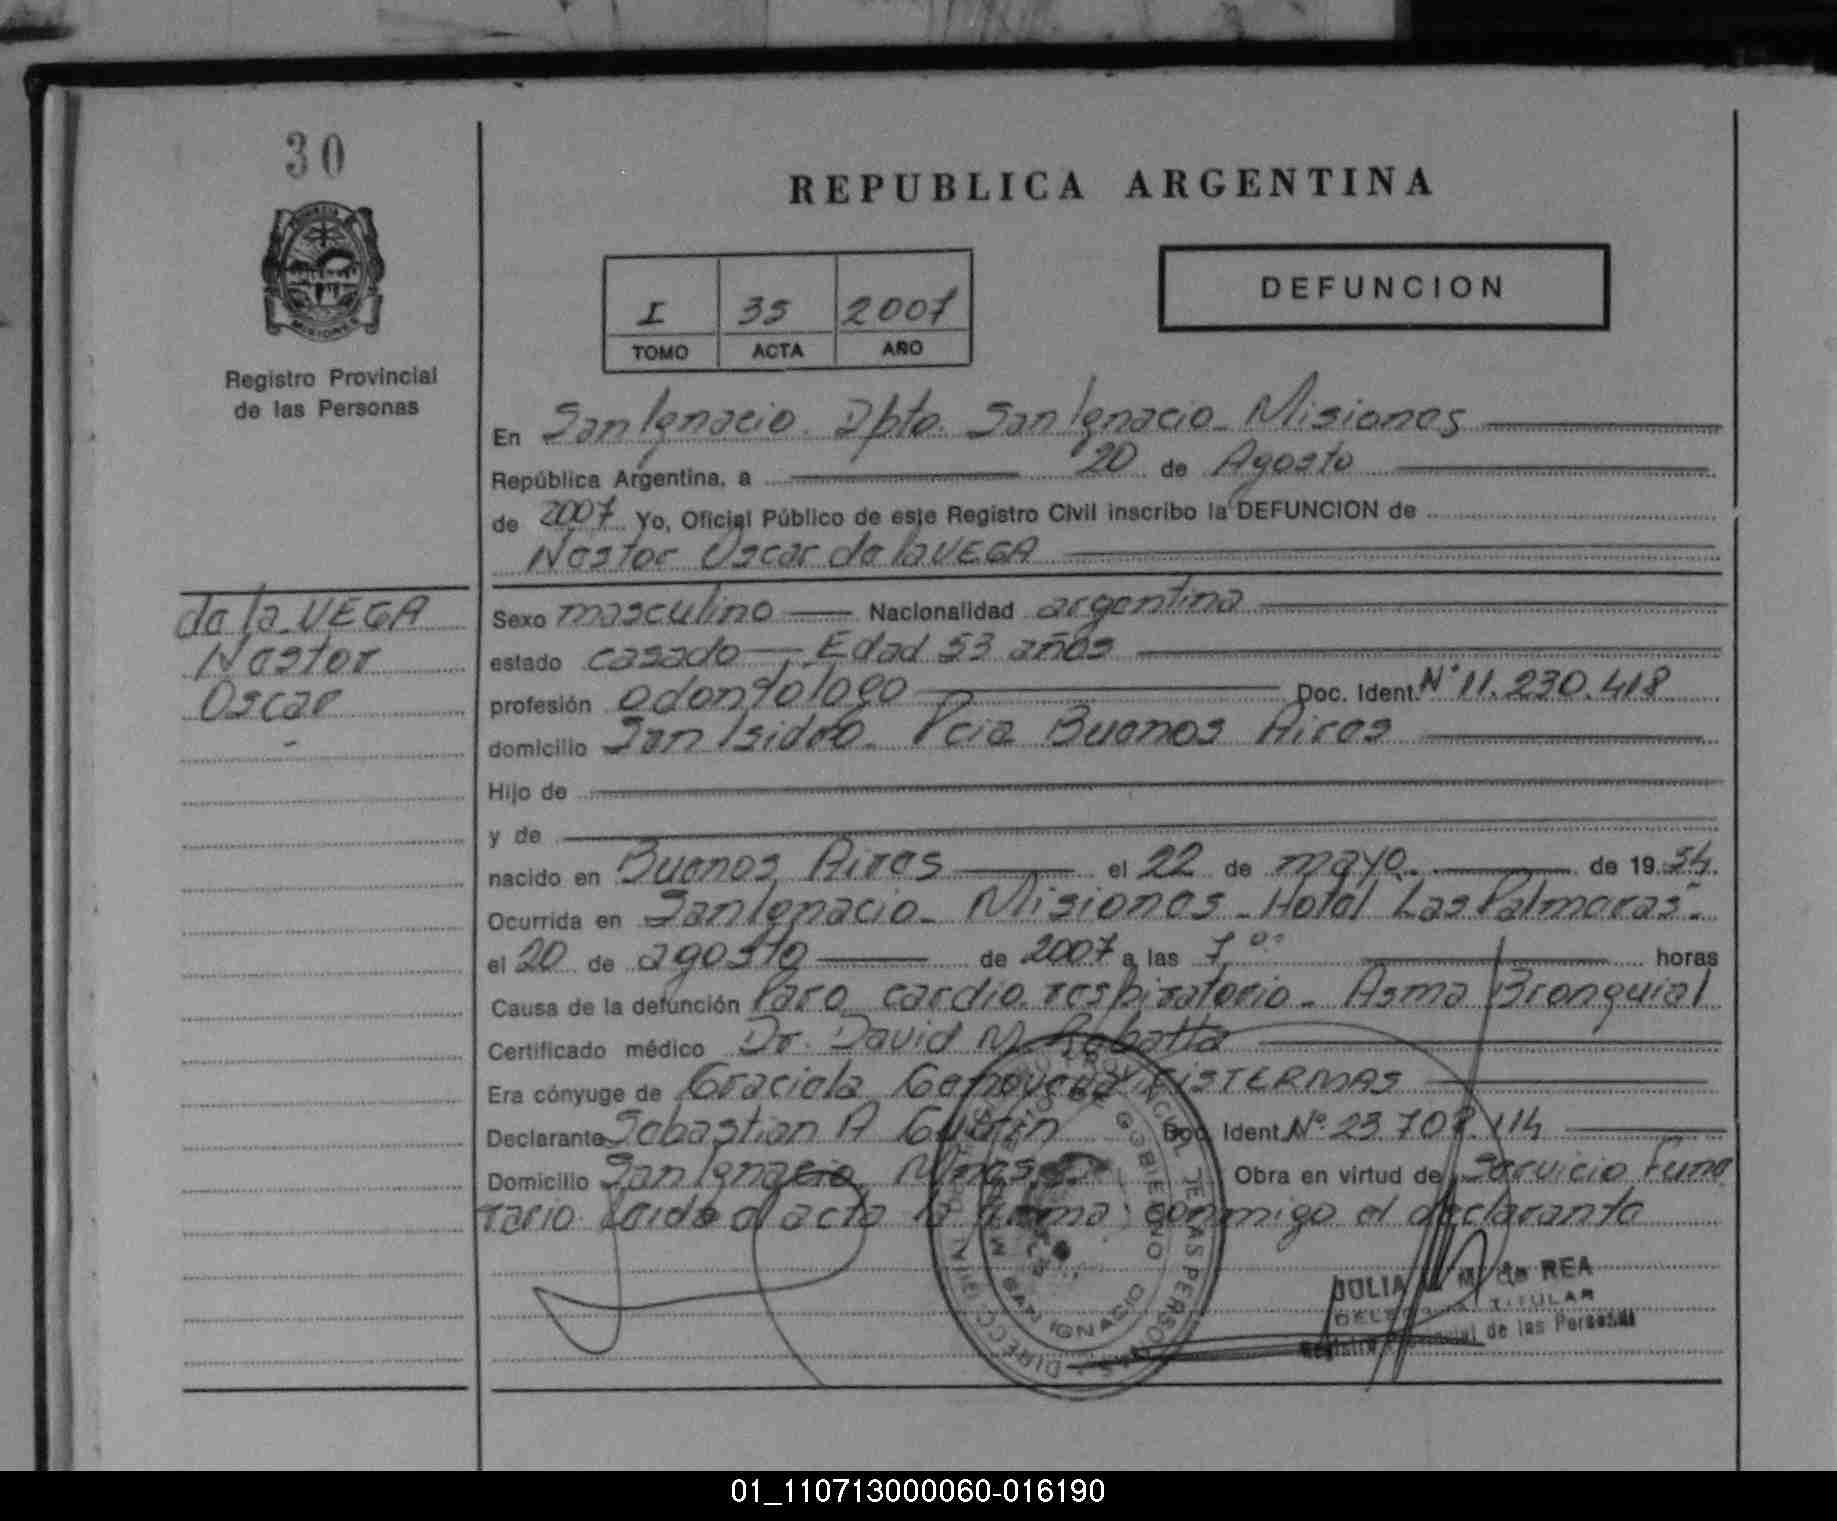 30
REPUBLICA ARGENTINA
DEFUNCION
I 35 2007
TOMO ACTA AÑO
MISIONES
Registro Provincial
de las Personas
En San Ignacio. Dpto. San Ignacio - Misiones
República Argentina, a 20 de Agosto
de 2007 Yo, Oficial Público de este Registro Civil inscribo la DEFUNCION de
Nestor Oscar de la VEGA
de la VEGA
Nestor
Oscar
Sexo masculino Nacionalidad argentina
estado casado - Edad 53 años
profesión odontologo Doc. Ident. N° 11.230.418
domicilio San Isidro - Pcia Buenos Aires
Hijo de
y de
nacido en Buenos Aires el 22 de mayo de 19 54.
Ocurrida en San Ignacio - Misiones - Hotel "Las Palmeras" -
el 20 de agosto de 2007 a las 7 00 horas
Causa de la defunción Paro cardio respiratorio - Asma Bronquial
Certificado médico Dr. David M.
Era cónyuge de Graciela Genoveva FISTERMAS
Declarante Sebastian A Doc. Ident. N° 23.707.114
Domicilio San Ignacio Mnes Obra en virtud de Servicio Fune
rario Leida el acta la firma conmigo el declarante
MINISTERIO DE GOBIERNO
SAN IGNACIO
JULIA M. de REA
DELEGADA TITULAR
Registro Provincial de las Personas
01_110713000060-016190